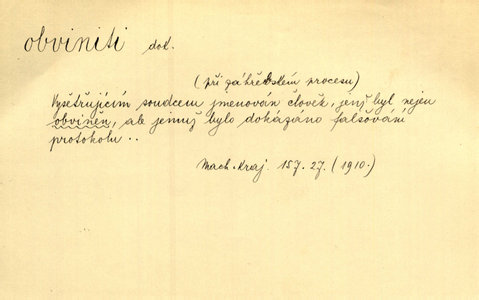 obviniti dok.
(při záhřebském procesu)
Vyšetřujícím soudcem jmenován člověk, jenž byl nejen
obviněn, ale jemuž bylo dokázáno falšování
protokolu..
Mach. Kraj. 157.27. (1910.)